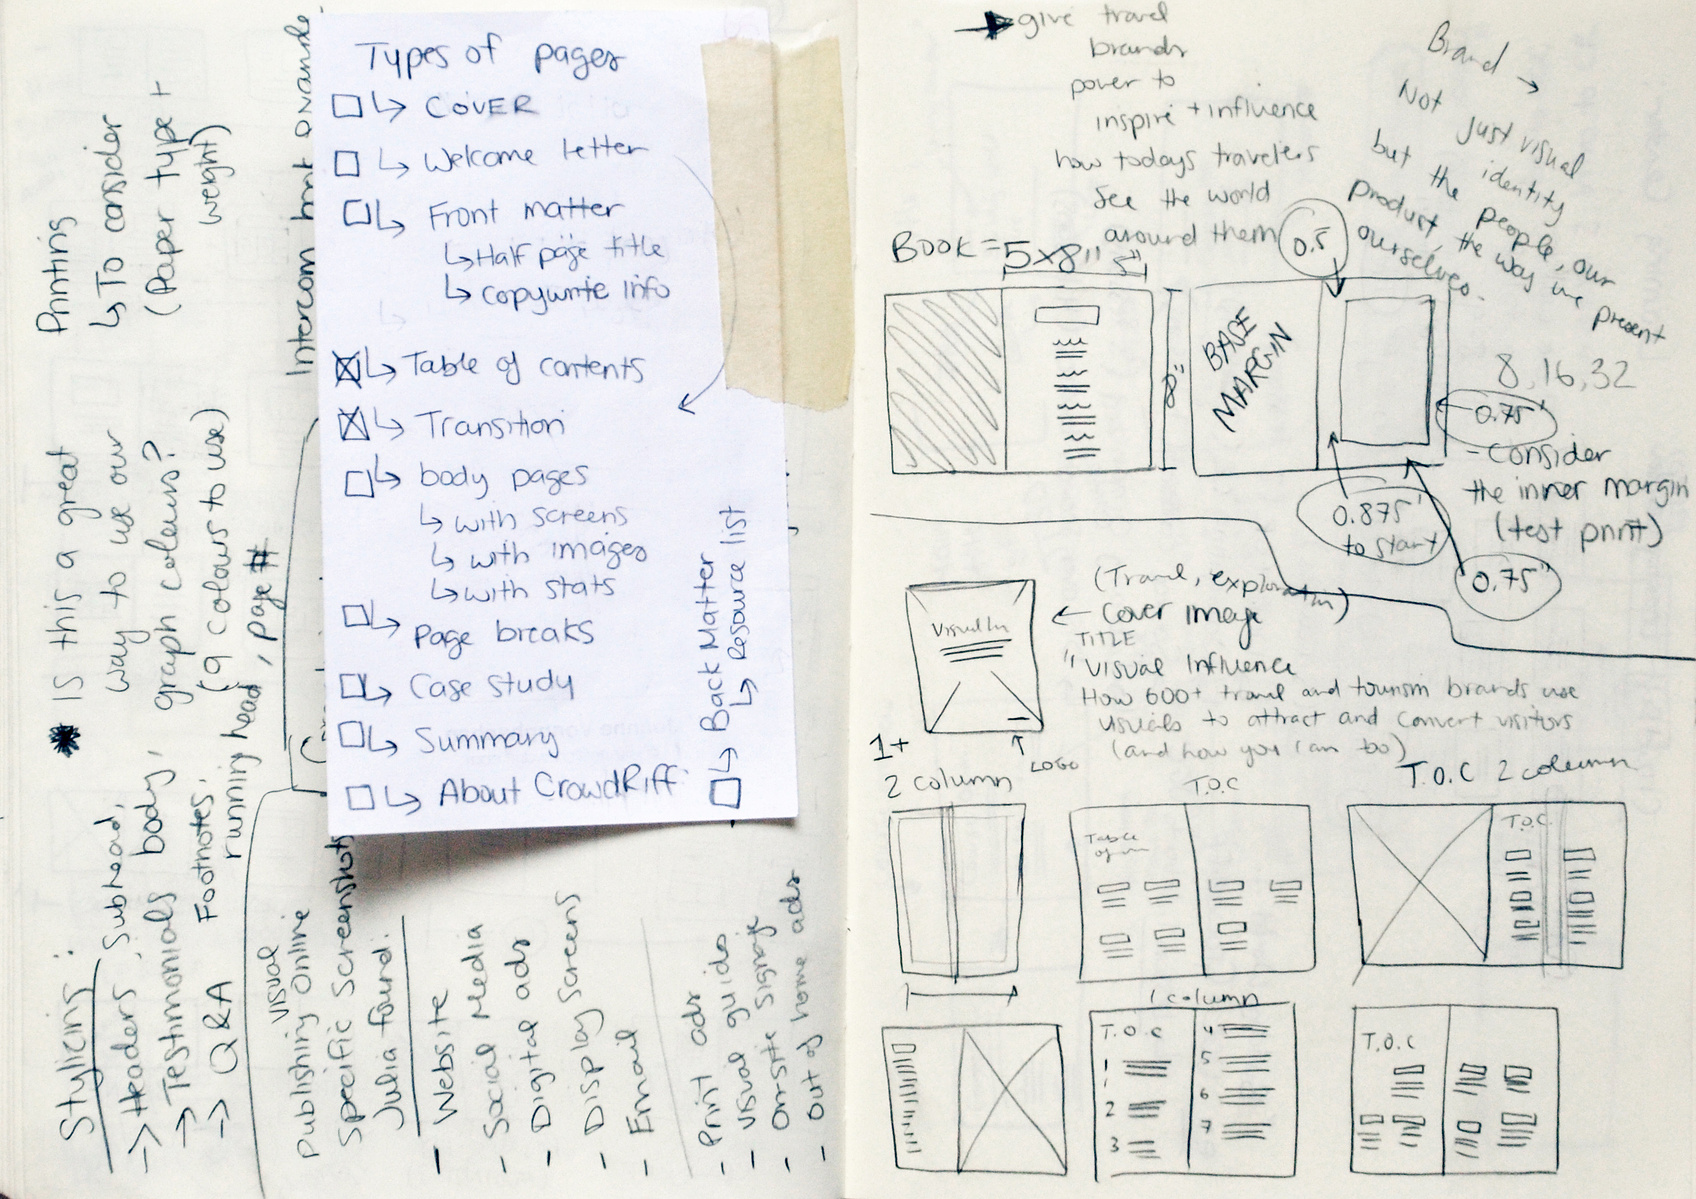 Printing
↳ To consider
(Paper type +
weight)
* Is this a great
way to use our
graph colours?
(9 colours to use)
Intercom
Stylicing:
→ Headers, Subhead,
→ Testimonials body,
→ Q&A Footnotes,
running head, page #
visual
Publishing Online
Specific Screenshots
Julia found:
- Website
- Social Media
- Digital ads
- Display Screens
- Email
- Print ads
- Visual guids
- Onsite signage
- Out of home ads
Types of pages
☐ ↳ COVER
☐ ↳ Welcome letter
☐ ↳ Front matter
↳ Half page title
↳ copywrite info
☒ ↳ Table of contents
☒ ↳ Transition
☐ ↳ body pages
↳ with screens
↳ with images
↳ with stats
☐ ↳ page breaks
☐ ↳ Case study
☐ ↳ Summary
☐ ↳ About CrowdRiff
☐ ↳ Back Matter
↳ Resource list
→ give travel
brands
power to
inspire + influence
how todays travelers
see the world
around them
Brand →
Not just visual
identity
but the people, our
product, the way we present
ourselves.
BOOK = 5x8"
5"
8"
0.5
BASE
MARGIN
8, 16, 32
0.75"
- Consider
the inner margin
(test print)
0.875"
to start
0.75"
(Travel, exploration)
← Cover image
TITLE
"Visual Influence
How 600+ travel and tourism brands use
visuals to attract and convert visitors
(and how you can too)
Visual In
LOGO
1+
2 column
T.O.C
T.O.C 2 column
Table
of
T.O.C.
1 column
T.O.C
1
2
3
4
5
6
7
T.O.C